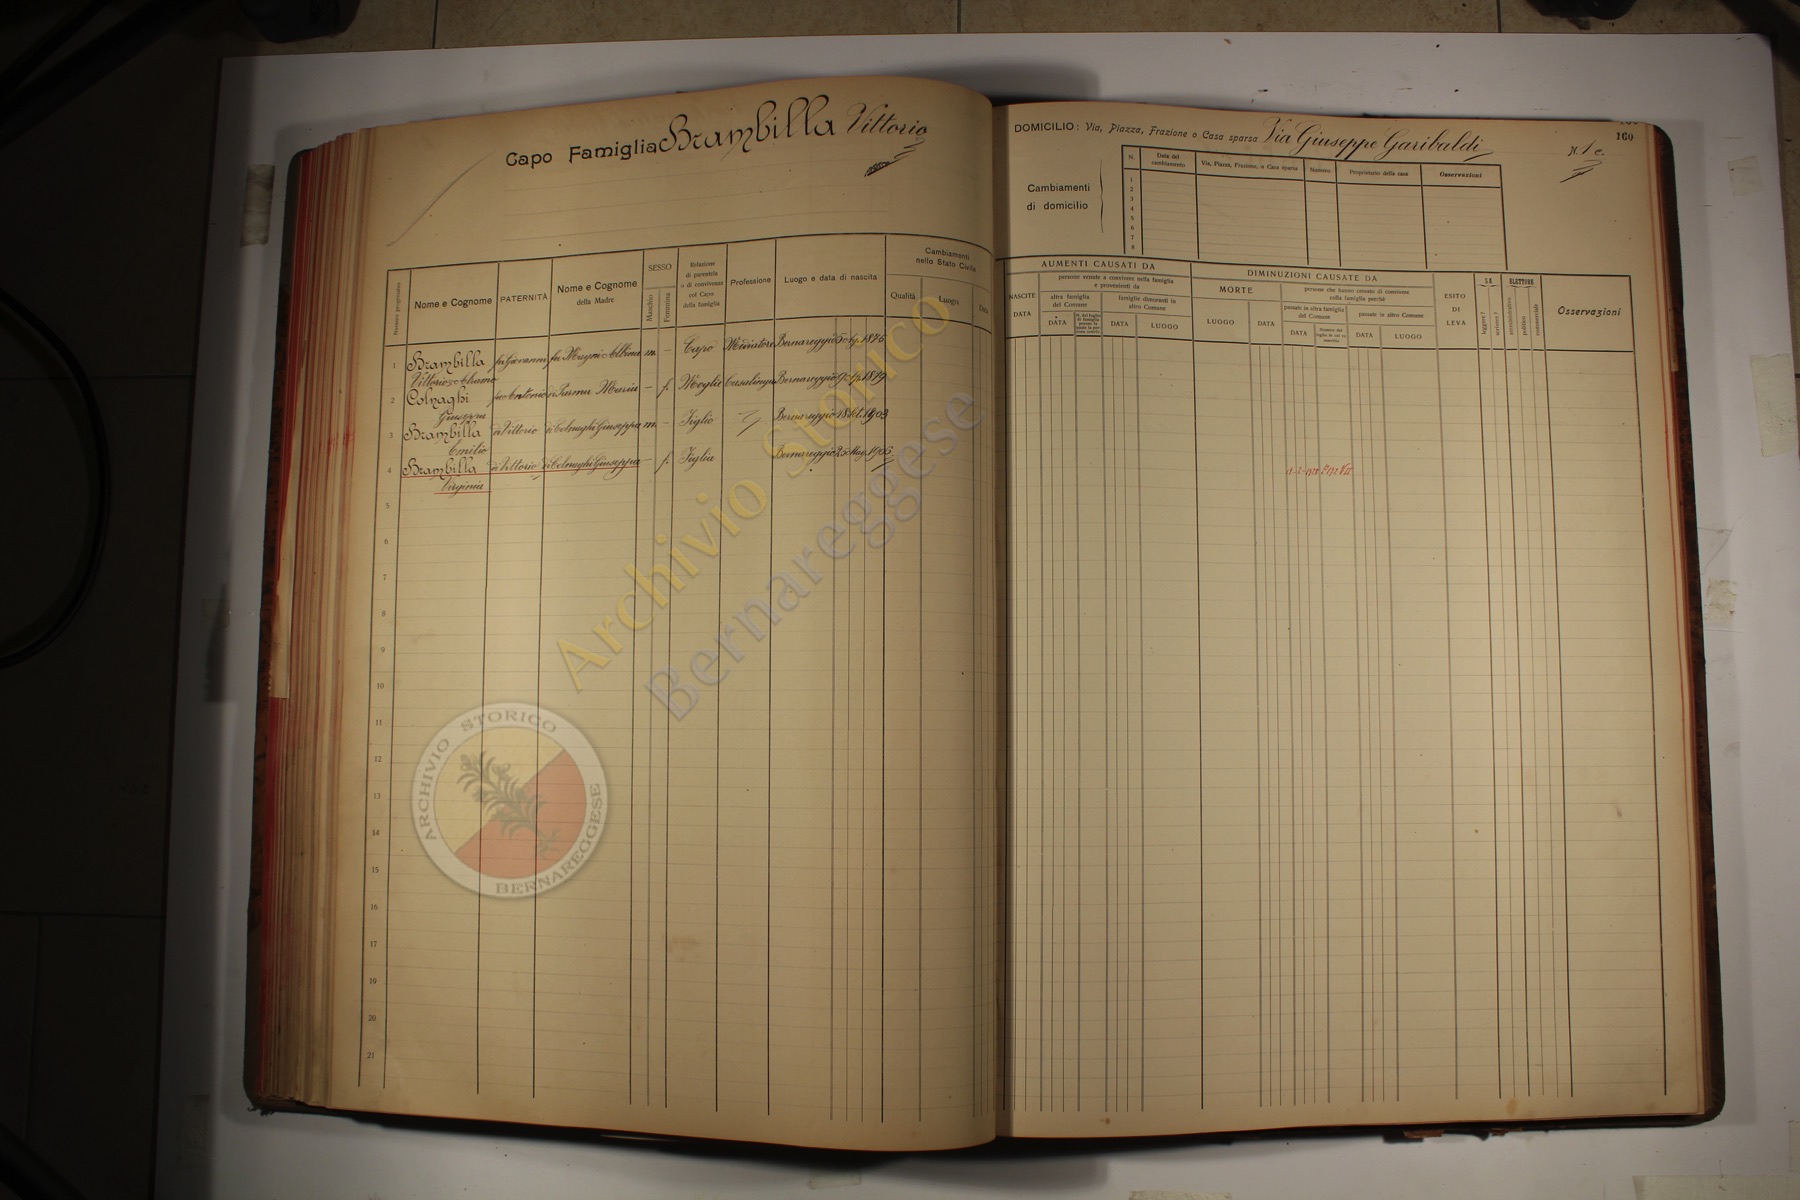 Capo Famiglia Brambilla Vittorio
Nome e Cognome
PATERNITÀ
Nome e Cognome
della Madre
SESSO
Maschio
Femmina
Relazione
di parentela
o di convivenza
col Capo
della famiglia
Professione
Luogo e data di nascita
Cambiamenti
nello Stato Civile
Qualità
Luogo
Data
1
Brambilla
fu Giovanni
m.
–
Capo
Bernareggio
1876
Vittorio
2
Colnaghi
Maria
–
f.
Moglie
Casalinga
Bernareggio
1879
Giuseppa
3
Brambilla
di Vittorio
di Colnaghi Giuseppa
m.
–
Figlio
Bernareggio
1903
Emilio
4
Brambilla
di Vittorio
di Colnaghi Giuseppa
–
f.
Figlia
Bernareggio
Virginia
5
6
7
8
9
10
11
12
13
14
15
16
17
18
19
20
21
DOMICILIO: Via, Piazza, Frazione o Casa sparsa Via Giuseppe Garibaldi
160
Cambiamenti
di domicilio
N.
Data del
cambiamento
Via, Piazza, Frazione, o Casa sparsa
Numero
Proprietario della casa
Osservazioni
1
2
3
4
5
6
7
8
AUMENTI CAUSATI DA
NASCITE
DATA
persone venute a convivere nella famiglia
e provenienti da
altra famiglia
del Comune
famiglie dimoranti in
altro Comune
DATA
DATA
LUOGO
DIMINUZIONI CAUSATE DA
MORTE
LUOGO
DATA
persone che hanno cessato di convivere
colla famiglia perchè
passate in altra famiglia
del Comune
passate in altro Comune
DATA
DATA
LUOGO
ESITO
DI
LEVA
SA
leggere?
scrivere?
ELETTORE
amministrativo
politico
commerciale
Osservazioni
Archivio Storico
Bernareggese
ARCHIVIO STORICO
BERNAREGGESE